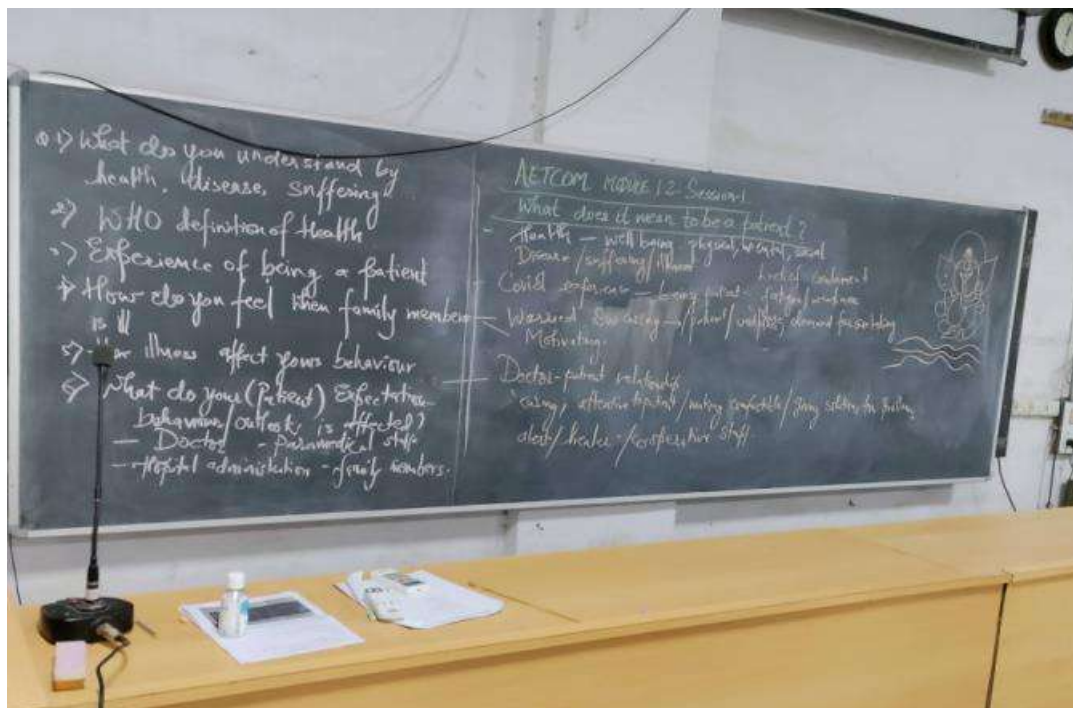 Q 1) What do you understand by
health, disease, suffering
2) WHO definition of Health
3) Experience of being a patient
4) How do you feel when family member
is ill
5) How illness affect yours behaviour
6) What do your (Patient) Expectation
behaviour/outlook is affected?
— Doctor - paramedical staff
— Hospital administration - family members.
AETCOM MODULE 1.2 Session-1
What does it mean to be a patient?
- Health — well being, physical, mental, social
Disease/suffering/illness
Covid experience — being patient - fatigue/weakness
— Worried
Motivating.
— Doctor-patient relationship
caring, attentive to patient/making comfortable/giving solution for
alert/healer/cooperative staff.